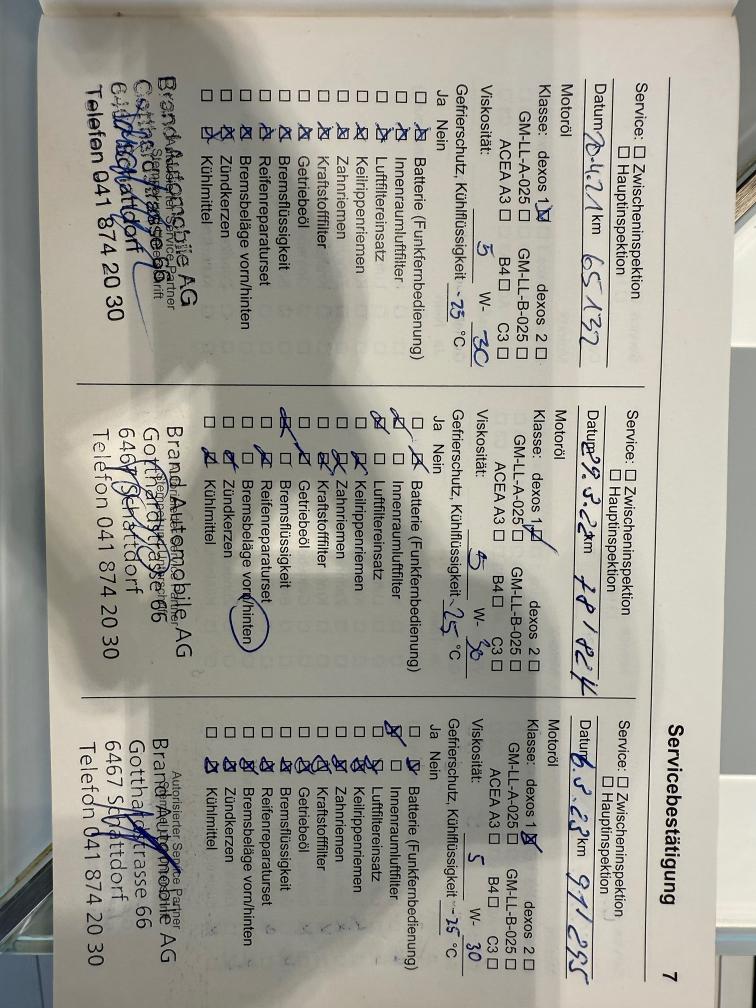 Servicebestätigung 7
Service: ☐ Zwischeninspektion
☐ Hauptinspektion
Datum 20.4.21 km 65 132
Motoröl
Klasse: dexos 1 ☒ dexos 2 ☐
GM-LL-A-025 ☐ GM-LL-B-025 ☐
ACEA A3 ☐ B4 ☐ C3 ☐
Viskosität: 5 W- 30
Gefrierschutz, Kühlflüssigkeit -25 °C
Ja Nein
☐ ☒ Batterie (Funkfernbedienung)
☐ ☒ Innenraumluftfilter
☐ ☒ Luftfiltereinsatz
☐ ☒ Keilrippenriemen
☐ ☒ Zahnriemen
☐ ☒ Kraftstofffilter
☐ ☒ Getriebeöl
☐ ☒ Bremsflüssigkeit
☐ ☒ Reifenreparaturset
☐ ☒ Bremsbeläge vorn/hinten
☐ ☒ Zündkerzen
☐ ☒ Kühlmittel
Service Partner
Brand Automobile AG
Telefon 041 874 20 30
Service: ☐ Zwischeninspektion
☐ Hauptinspektion
Datum 29.3.22 km 78 182
Motoröl
Klasse: dexos 1 ☒ dexos 2 ☐
GM-LL-A-025 ☐ GM-LL-B-025 ☐
ACEA A3 ☐ B4 ☐ C3 ☐
Viskosität: 5 W- 30
Gefrierschutz, Kühlflüssigkeit -25 °C
Ja Nein
☐ ☒ Batterie (Funkfernbedienung)
☒ ☐ Innenraumluftfilter
☒ ☐ Luftfiltereinsatz
☐ ☒ Keilrippenriemen
☐ ☒ Zahnriemen
☐ ☒ Kraftstofffilter
☐ ☒ Getriebeöl
☒ ☐ Bremsflüssigkeit
☐ ☒ Reifenreparaturset
☐ ☐ Bremsbeläge vorn/hinten
☐ ☒ Zündkerzen
☐ ☒ Kühlmittel
Brand Automobile AG
Gotthardstrasse 66
6467 Schattdorf
Telefon 041 874 20 30
Service: ☐ Zwischeninspektion
☐ Hauptinspektion
Datum 6.3.23 km 91 295
Motoröl
Klasse: dexos 1 ☒ dexos 2 ☐
GM-LL-A-025 ☐ GM-LL-B-025 ☐
ACEA A3 ☐ B4 ☐ C3 ☐
Viskosität: 5 W- 30
Gefrierschutz, Kühlflüssigkeit -25 °C
Ja Nein
☐ ☒ Batterie (Funkfernbedienung)
☒ ☐ Innenraumluftfilter
☐ ☒ Luftfiltereinsatz
☐ ☒ Keilrippenriemen
☐ ☒ Zahnriemen
☐ ☒ Kraftstofffilter
☐ ☒ Getriebeöl
☐ ☒ Bremsflüssigkeit
☐ ☒ Reifenreparaturset
☐ ☒ Bremsbeläge vorn/hinten
☐ ☒ Zündkerzen
☐ ☒ Kühlmittel
Autorisierter Service Partner
Brand Automobile AG
Gotthardstrasse 66
6467 Schattdorf
Telefon 041 874 20 30